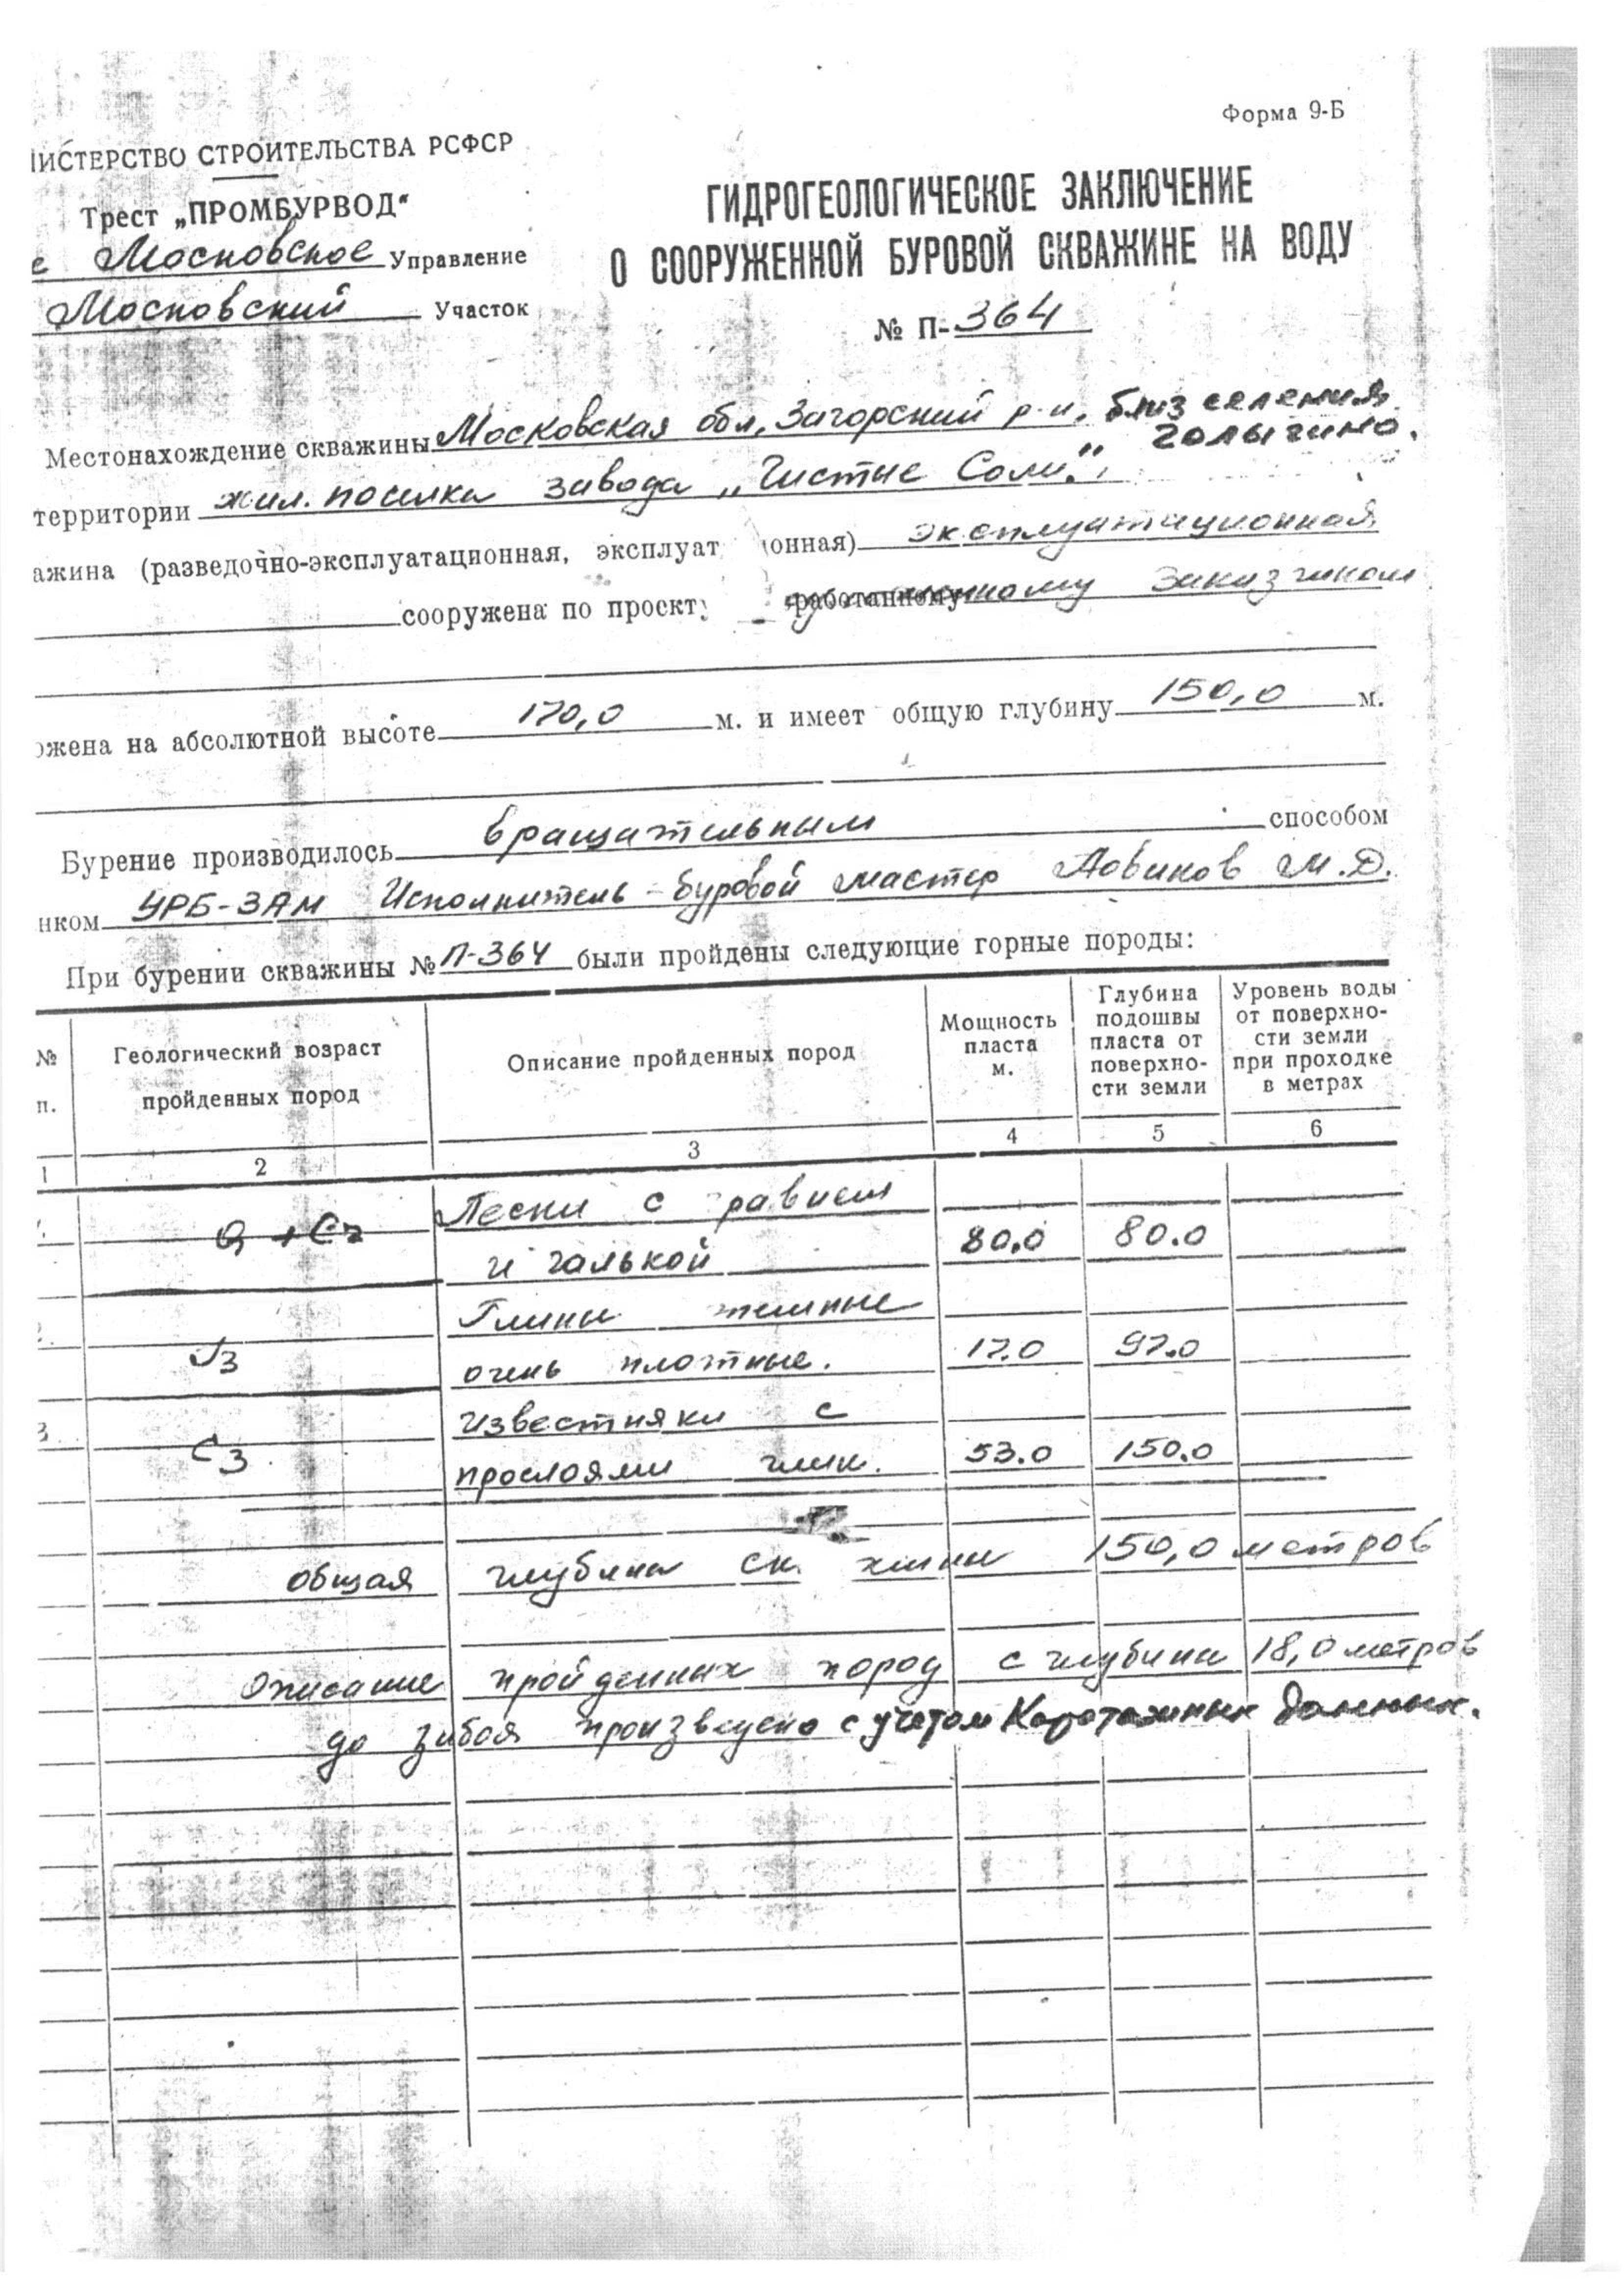 Форма 9-Б
ИСТЕРСТВО СТРОИТЕЛЬСТВА РСФСР
Трест „ПРОМБУРВОД"
е Московское Управление
Московский Участок
ГИДРОГЕОЛОГИЧЕСКОЕ ЗАКЛЮЧЕНИЕ
О СООРУЖЕННОЙ БУРОВОЙ СКВАЖИНЕ НА ВОДУ
№ П-364
Местонахождение скважины Московская обл, Загорский р-н, близ селения
Голыгино.
территории жил. поселка завода „Чистые Соли".
ажина (разведочно-эксплуатационная, эксплуат онная) эксплуатационная
сооружена по проект работанному заказчиком
ожена на абсолютной высоте 170,0 м. и имеет общую глубину 150,0 м.
Бурение производилось вращательным способом
нком УРБ-3АМ Исполнитель - буровой мастер М.Д.
При бурении скважины № П-364 были пройдены следующие горные породы:
№ п. Геологический возраст пройденных пород Описание пройденных пород Мощность пласта м. Глубина подошвы пласта от поверхно- сти земли Уровень воды от поверхно- сти земли при проходке в метрах
1 2 3 4 5 6
Пески с равием
Q + Cr и галькой 80.0 80.0
Глины темные
J3 очень плотные. 17.0 97.0
3 известняки с
C3 прослоями глин. 53.0 150.0
общая глубина ск жины 150,0 метров
Описание пройденных пород с глубины 18,0 метров
до забоя произведено с учетом Каротажных данных.